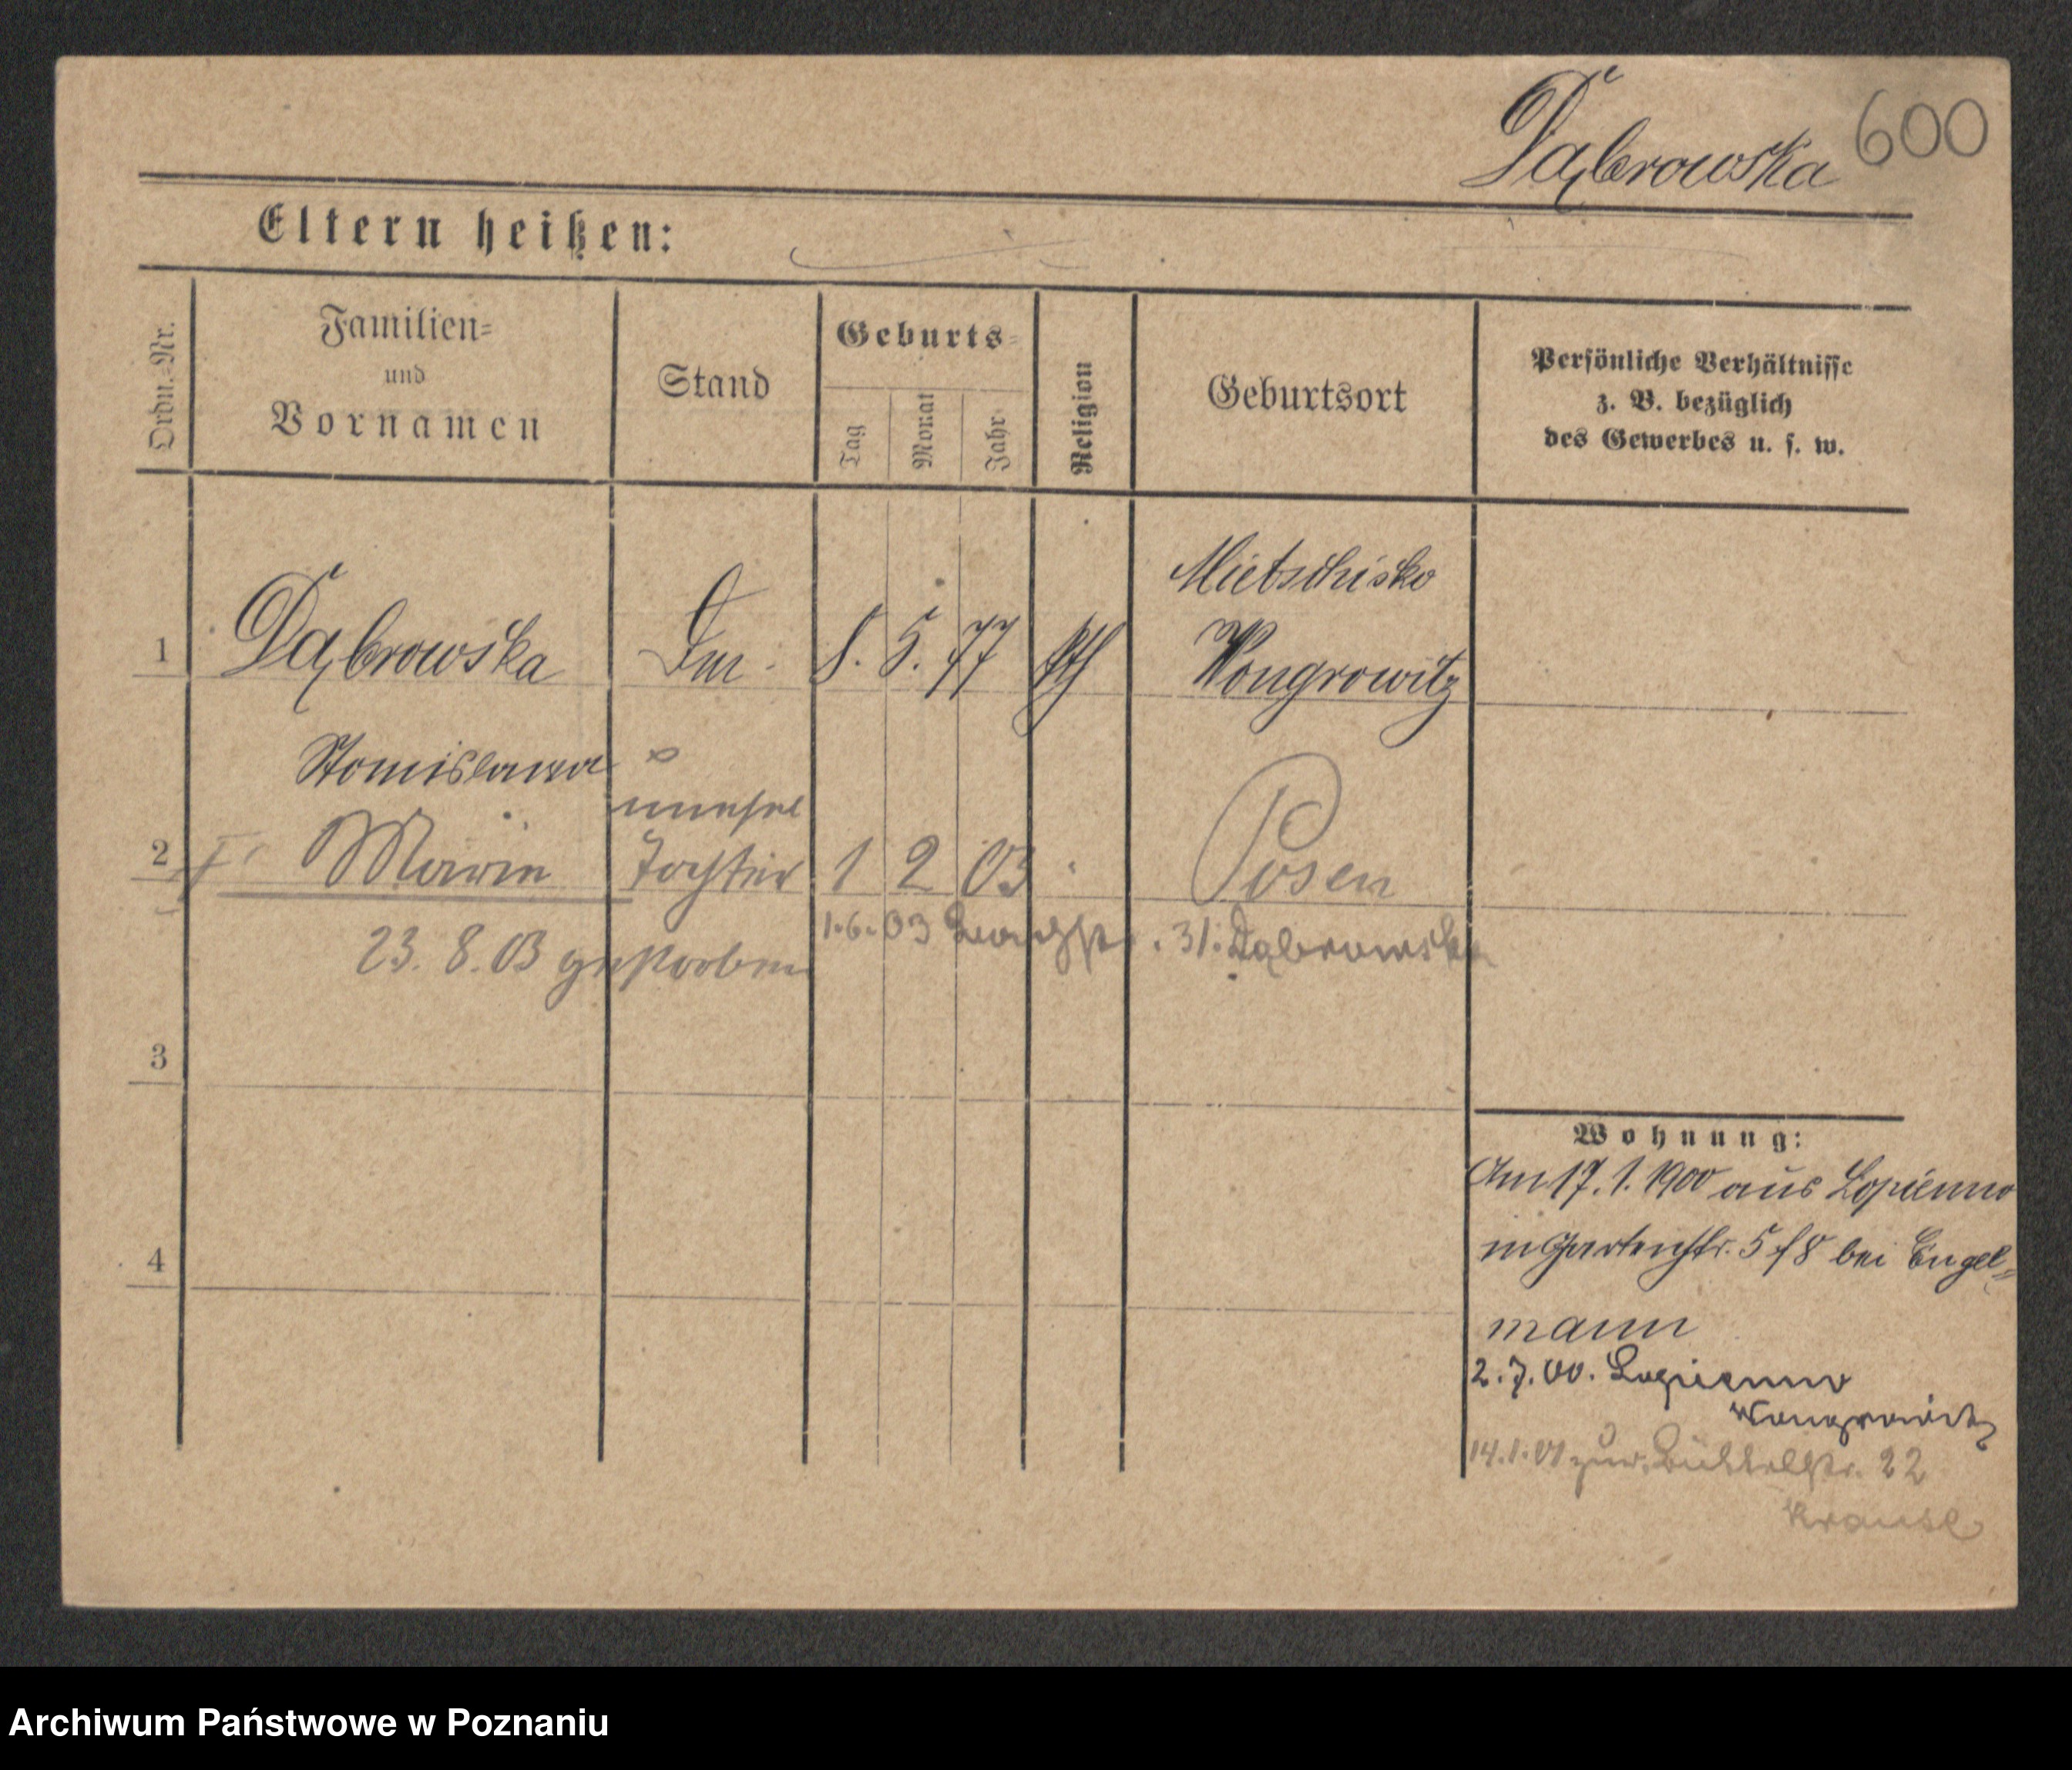 Dąbrowska 600
Eltern heißen:
Ordn.-Nr.
Familien-
und
Vornamen
Stand
Geburts-
Tag
Monat
Jahr
Religion
Geburtsort
Persönliche Verhältnisse
z. B. bezüglich
des Gewerbes u. s. w.
Mietschisko
1 Dąbrowska 8. 5. 77 kth Wongrowitz
Stanislawa
unehel
2 Marie Tochter 1 2 03 Posen
1.6.03 31. Dąbrowska
23. 8. 03 gestorben
3
Wohnung:
Am 17. 1. 1900 aus Lopienno
in Gartenstr. 5 f 8 bei Engel-
4
mann
2. 7. 00. Lopienno
Wongrowitz
14.1.01 22
Krause
Archiwum Państwowe w Poznaniu